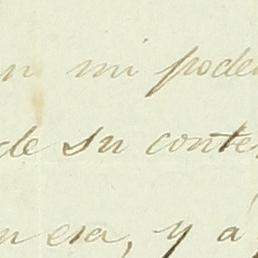 en mi poder
de su conte
n esa, y á